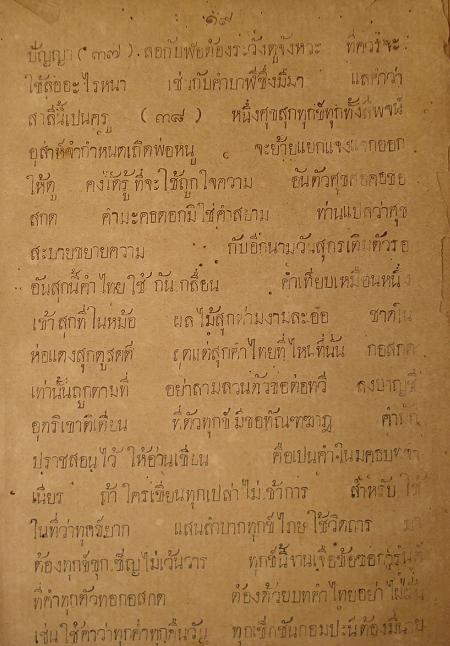 ๑๙
ปัญญา ( ๓๗ ) สอกับพ่อต้องระวังดูจังหวะ ที่ควรจะ
ใช้สออะไรหนา เช่นกับคำบาฬีซึ่งมีมา แลคำว่า
สาลีนี้เปนครู ( ๓๘ ) หนึ่งศุขสุกทุกข์ทุกทั้งสี่พจน์
อุส่าห์จำกำหนดเถิดพ่อหนู จะย้ายแยกแจงแจกออก
ให้ดู คงได้รู้ที่จะใช้ถูกใจความ อันตัวศุขสอคอขอ
สกด คำมะคธดอกมิใช่คำสยาม ท่านแปลว่าศุข
สะบายขยายความ กับอีกนามวันสุกรเดิมตัวรอ
อันสุกนี้คำไทยใช้กันเกลื่อน คำเทียบเหมือนหนึ่ง
เข้าสุกที่ในหม้อ ผลไม้สุกตามงามลออ ชาดใน
ห่อแดงสุกดูสดดี สุดแต่สุกคำไทยที่ไหนที่นั้น กอสกด
เท่านั้นถูกตามที่ อย่าลามลวนตัวขอต่อทวี
อุตริเขาติเตียน ที่ตัวทุกข์มีขอทัณฑฆาฏ
ปราชสอนไว้ให้อ่านเขียน คือเปนคำในมคธบท
เนียร ถ้าใครเขียนทุกเปล่าไม่เข้าการ สำหรับใช้
ในที่ว่าทุกข์ยาก แสนลำบากทุกข์โทษใช้วิตถาร
ต้องทุกข์ขุกเข็ญไม่เว้นวาร ทุกข์นี้งานเงื่อข้อขอการุนต์
ที่คำทุกตัวทอกอสกด ต้องด้วยบทคำไทยอย่าไผ่ผัน
เช่นใช้คำว่าทุกค่ำทุกคืนวัน ทุกเช็กชั้นกอมปะนีต้องมีนาย